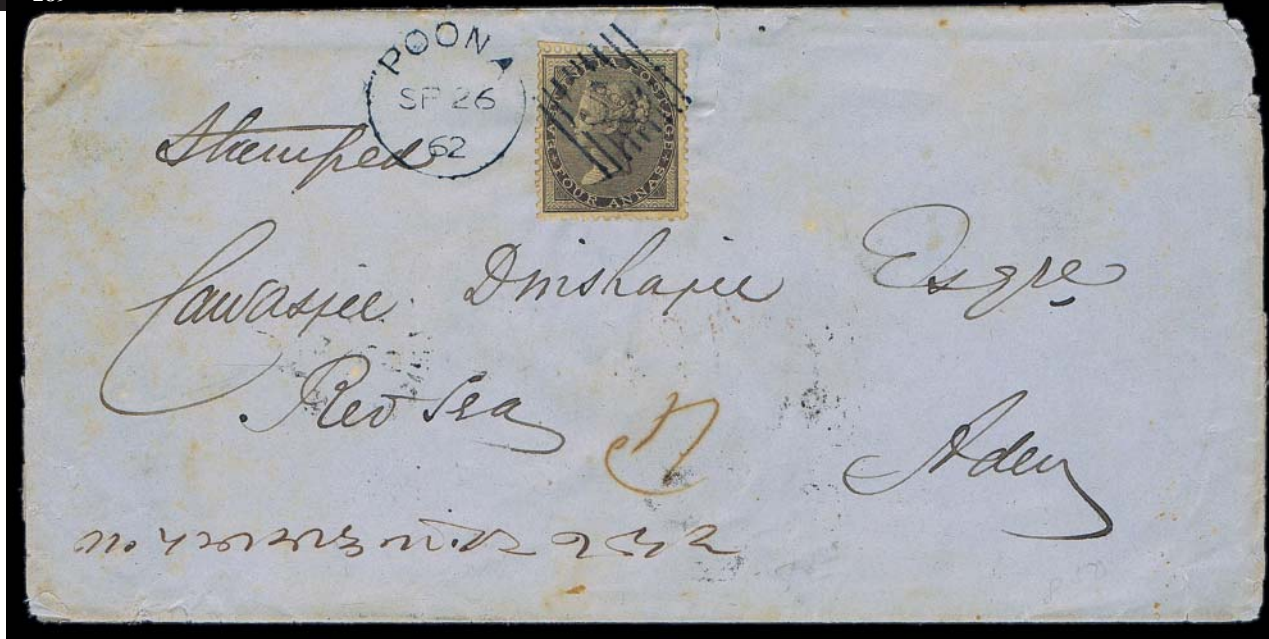 POONA
SP 26
62
INDIA POSTAGE
FOUR ANNAS
Stamped
Cawasjee Dinshajee Esqre
Red Sea
Aden